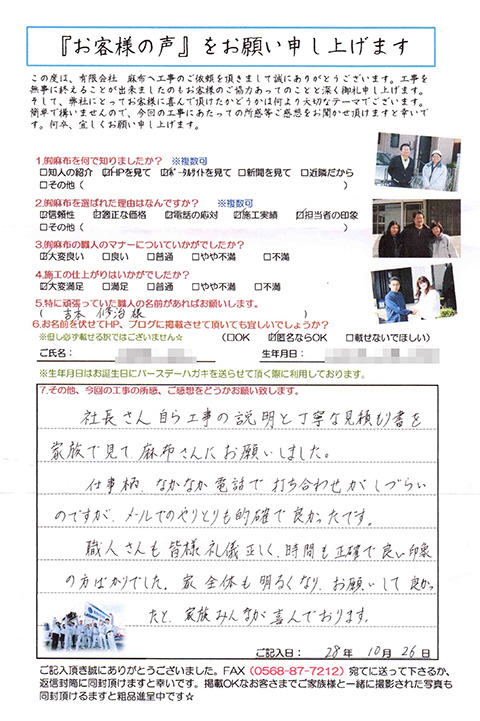 『お客様の声』をお願い申し上げます
この度は、有限会社 麻布へ工事のご依頼を頂きまして誠にありがとうございます。工事を
無事に終えることが出来ましたのもお客様のご協力あってのことと深く御礼申し上げます。
そして、弊社にとってお客様に喜んで頂けたかどうかは何より大切なテーマでございます。
簡単で構いませんので、今回の工事にあたっての所感等ご感想をお聞かせ頂けますと幸いで
す。何卒、宜しくお願い申し上げます。
1.㈲麻布を何で知りましたか? ※複数可
□知人の紹介 ☑HPを見て ☑ポータルサイトを見て □新聞を見て □近隣だから
□その他( )
2.㈲麻布を選ばれた理由はなんですか? ※複数可
☑信頼性 ☑適正な価格 ☑電話の応対 ☑施工実績 ☑担当者の印象
□その他( )
3.㈲麻布の職人のマナーについていかがでしたか?
☑大変良い □良い □普通 □やや不満 □不満
4.施工の仕上がりはいかがでしたか?
☑大変満足 □満足 □普通 □やや不満 □不満
5.特に頑張っていた職人の名前があればお願いします。
( 吉本 修治 様 )
6.お名前を伏せてHP、ブログに掲載させて頂いても宜しいでしょうか?
※但し必ず載せる訳ではございません☆ (□OK ☑匿名ならOK □載せないでほしい)
ご氏名: 生年月日:
※生年月日はお誕生日にバースデーハガキを送らせて頂く際に利用しております。
7.その他、今回の工事の所感、ご感想をどうかお願い致します。
社長さん自ら工事の説明と丁寧な見積もり書を
家族で見て麻布さんにお願いしました。
仕事柄、なかなか電話で打ち合わせがしづらい
のですが、メールでのやりとりも的確で良かったです。
職人さんも皆様礼儀正しく、時間も正確で良い印象
の方ばかりでした。家全体も明るくなり、お願いして良かっ
たと、家族みんなが喜んでおります。
ご記入日: 28年 10月 26日
ご記入頂き誠にありがとうございました。FAX(0568-87-7212)宛てに送って下さるか、
返信封筒に同封頂けますと幸いです。掲載OKなお客さまでご家族様と一緒に撮影された写真も
同封頂けるますと粗品進呈中です☆